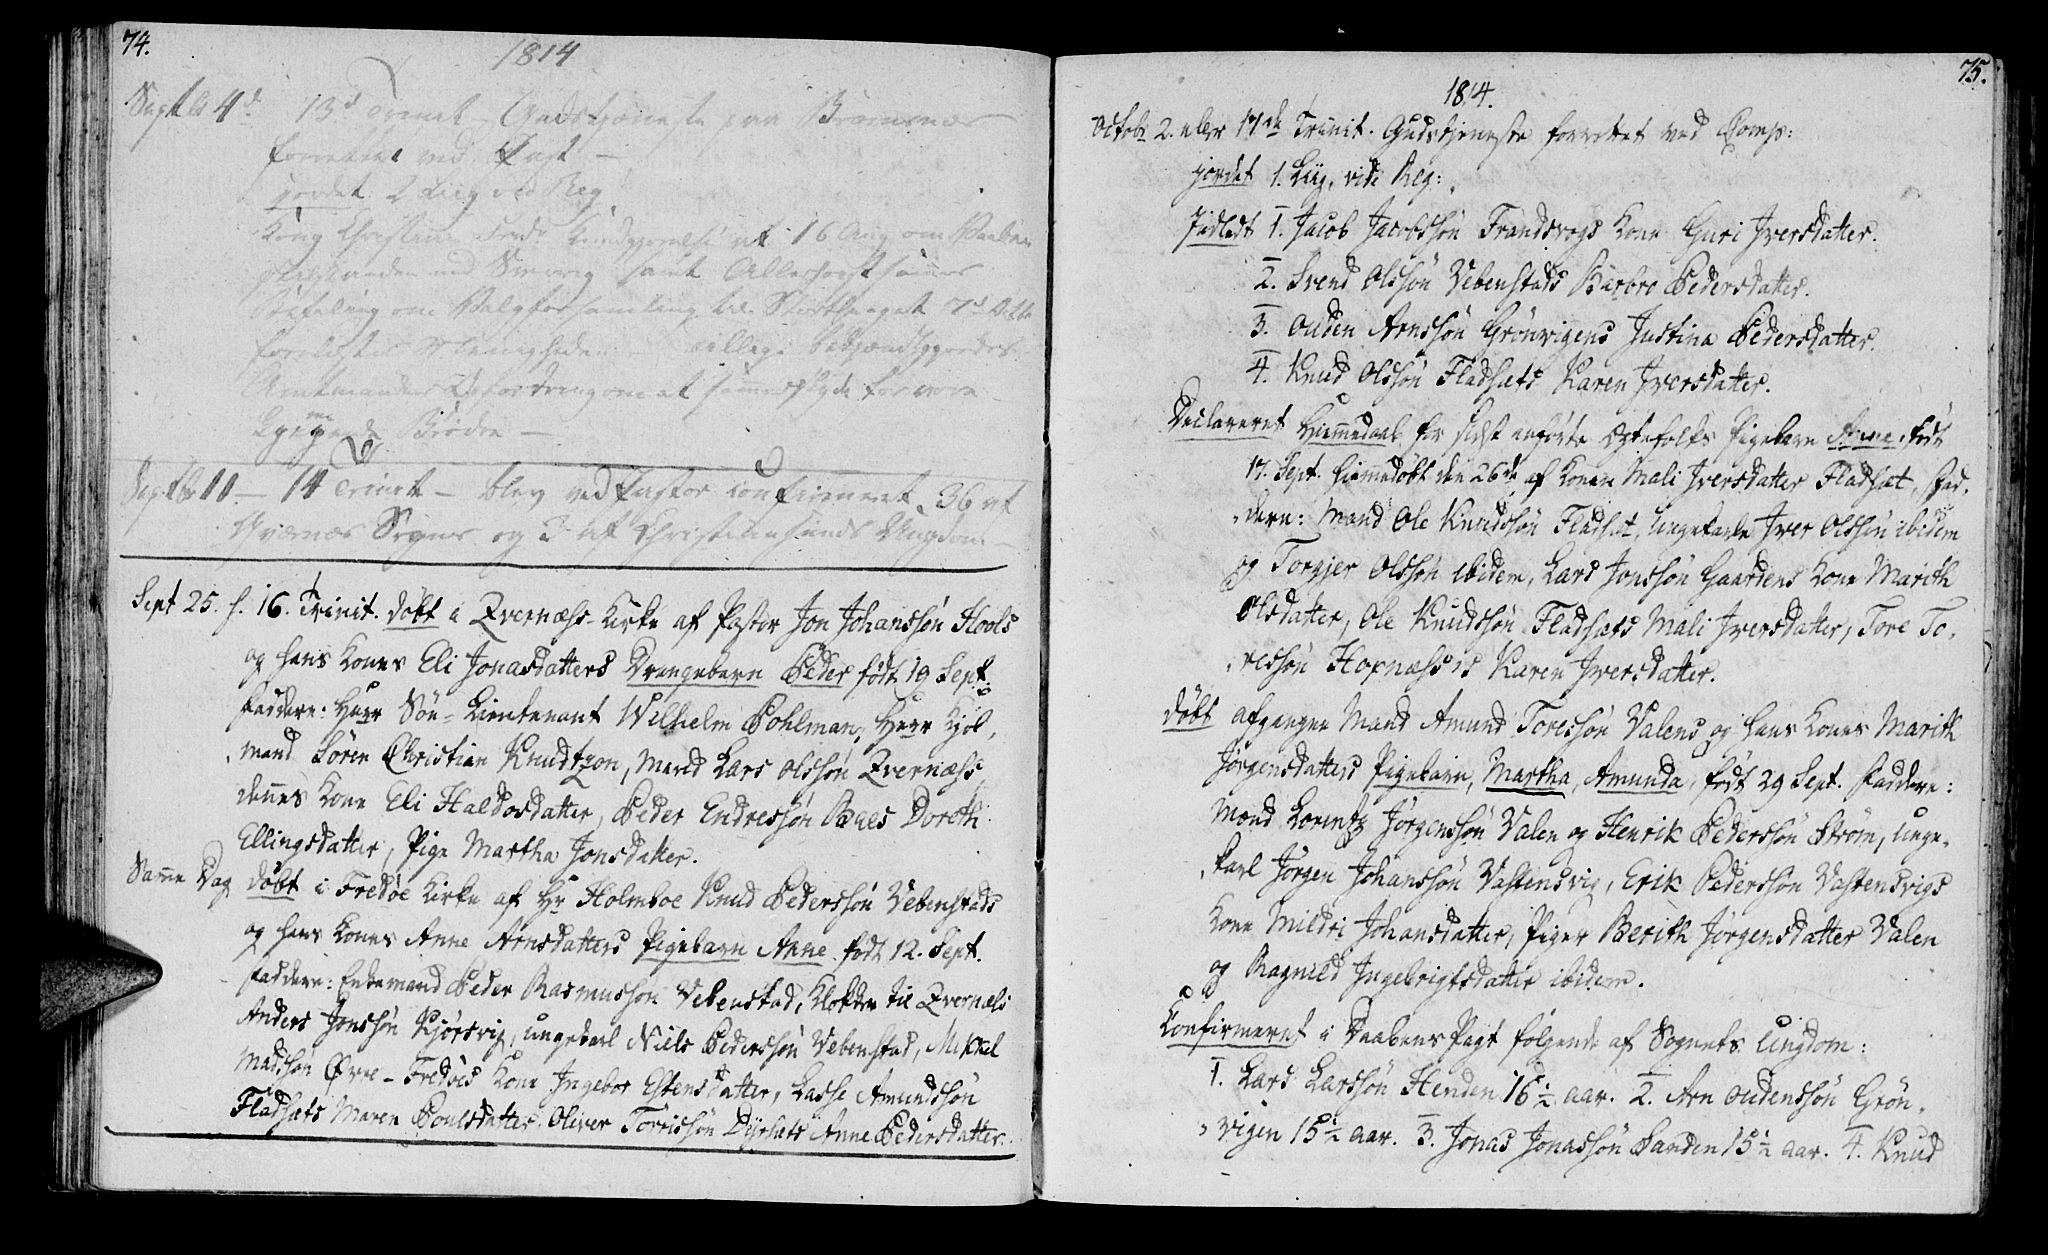 74.
1814
Septbr 4de 13de Trinit Gudstjeneste paa Bremsnæs
forrettet ved Past –
jordet 2 Liig vid Reg
Kong Christian Fred. Kundgjørelse af 16 Aug om Vaaben
stilstanden med Sverrig samt Allerhøistsammes
Befaling om Valgforsamling til Storthinget 7de Octbr
forelæstes Menigheden
Amtmandens Opfordring om at for vore
Brødre –
Septbr 11 – 14 Trinit – blev ved Pastor confirmeret 36 af
Qværnæs Sogns og 3 af Christiansunds Ungdom –
Sept 25. f. 16. Trinit. døbt i Qvernæss-Kirke af Pastor Jon Johanssøn Hools
og hans Kones Eli Jonasdatters Drengebarn Peder født 19 Sept.
Faddere: Herr Søe-Lieutenant Wilhelm Pohlman, Herr Kjøb-
mand Søren Christian Knudtzon, Mand Lars Olssøn Qvernæss,
dennes Kone Eli Haldosdatter, Peder Endressøn Baes Doreth
Ellingsdatter, Pige Martha Jonsdatter.
Samme Dag døbt i Fredøe Kirke af Hr Holmboe Knud Pederssøn Vebenstads
og hans Kones Anne Arnsdatters Pigebarn Anne født 12. Sept.
Faddere: Enkemand Peder Rasmussøn Vebenstad, Klokker til Qvernæs
Anders Jonssøn Kjørsvig, ungekarl Niels Pederssøn Vebenstad, Mikkel
Madssøn Øvre-Fredøes Kone Ingebor Estensdatter, Lasse Amundssøn
Fladsæts Maren Poulsdatter. Oliver Torrissøn Dyrsæts Anne Pedersdatter.
75.
1814.
Octobr 2. eller 17de Trinit. Gudstjeneste forrettet ved Comp:
jordet 1. Liig, vide Reg:
Indledt 1. Jacob Jacobssøn Frandsvogs Kone Guri Iversdatter.
2. Svend Olssøn Vebenstads Barbro Pedersdatter.
3. Ouden Arnssøn Grønvigens Justina Pedersdatter.
4. Knud Olssøn Fladsæts Karen Iversdatter.
Declareret Hiemmedaab for sidst anførte Ægtefolks Pigebarn Anne, født
17. Sept. hiemmedøbt den 26de af Konen Mali Iversdatter Fladsæt, Fad-
dere: Mand Ole Knudssøn Fladsæt, Ungekarle Iver Olssøn ibidem
og Torgjer Olssøn ibidem, Lars Jonssøn Gaardens Kone Marith
Olsdatter, Ole Knudssøn Fladsæts Mali Iversdatter, Tore To-
ressøn Hopnæss's Karen Iversdatter.
Døbt afgangne Mand Amund Toressøn Valens og hans Kones Marith
Jørgensdatters Pigebarn, Martha, Amunda, født 29 Sept. Faddere:
Mænd Lorentz Jørgenssøn Valen og Henrik Pederssøn Strøm, Unge-
karl Jørgen Johanssøn Vastensvig, Erik Pederssøn Vastensvigs
Kone Mildri Johansdatter, Piger Berith Jørgensdatter Valen
og Ragnild Ingebrigtsdatter ibidem.
Confirmeret i Daabens Pagt følgende af Sognets Ungdom:
1. Lars Larssøn Henden 16 ½ aar. 2. Arn Oudenssøn Grøn-
vigen 15 ½ aar. 3. Jonas Jonassøn Sanden 15 ½ aar. 4. Knud